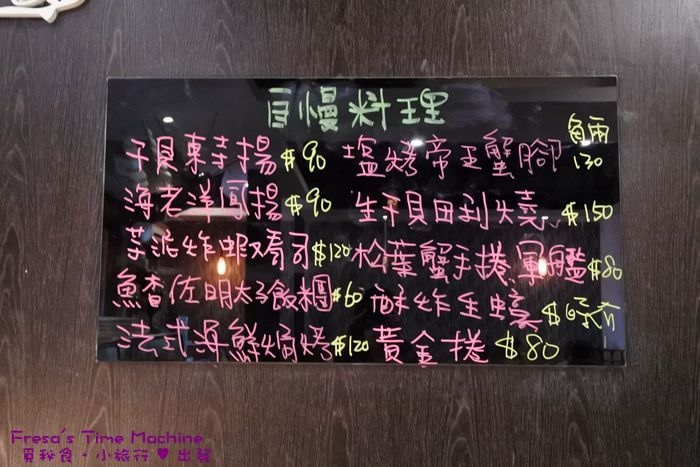 自慢料理
干貝東寺揚 $90
海老洋鳳揚 $90
芋泥炸蝦壽司 $120
魚香佐明太子飯糰 $60
法式海鮮焗烤 $120
每兩
塩烤帝王蟹腳 130
生干貝田刲燒 $150
松葉蟹手捲 軍艦 $80
酥炸生蠔 $時价
黃金捲 $80
Fresa's Time Machine
覓秘食・小旅行♥出發